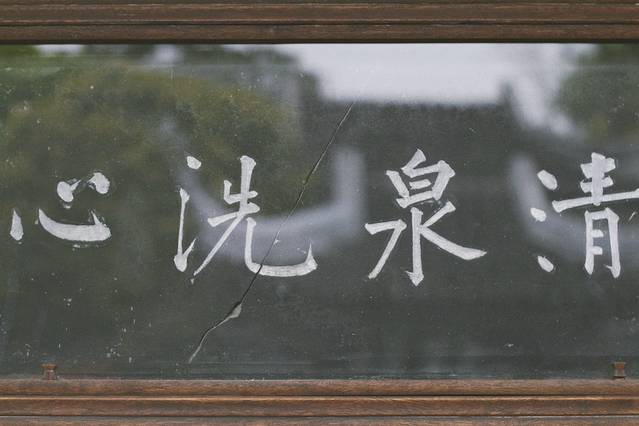 清泉洗心